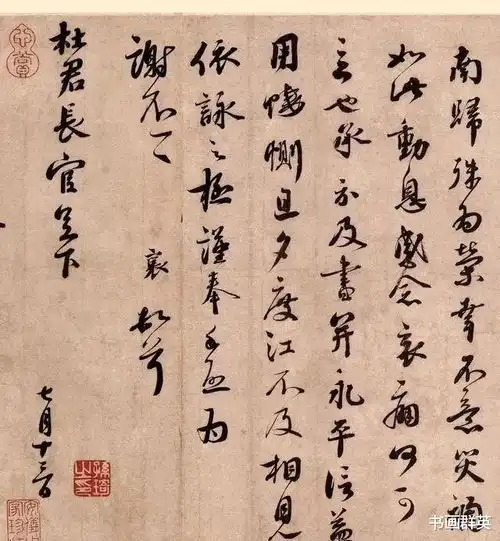 南歸殊為榮幸不意災禍
如此動息感念哀痛何可
言也承示及書并永平信益
用悽惻旦夕度江不及相見
依詠之極謹奉手啟為
謝不一一
襄頓首
杜君長官足下
七月十三日
书画群英